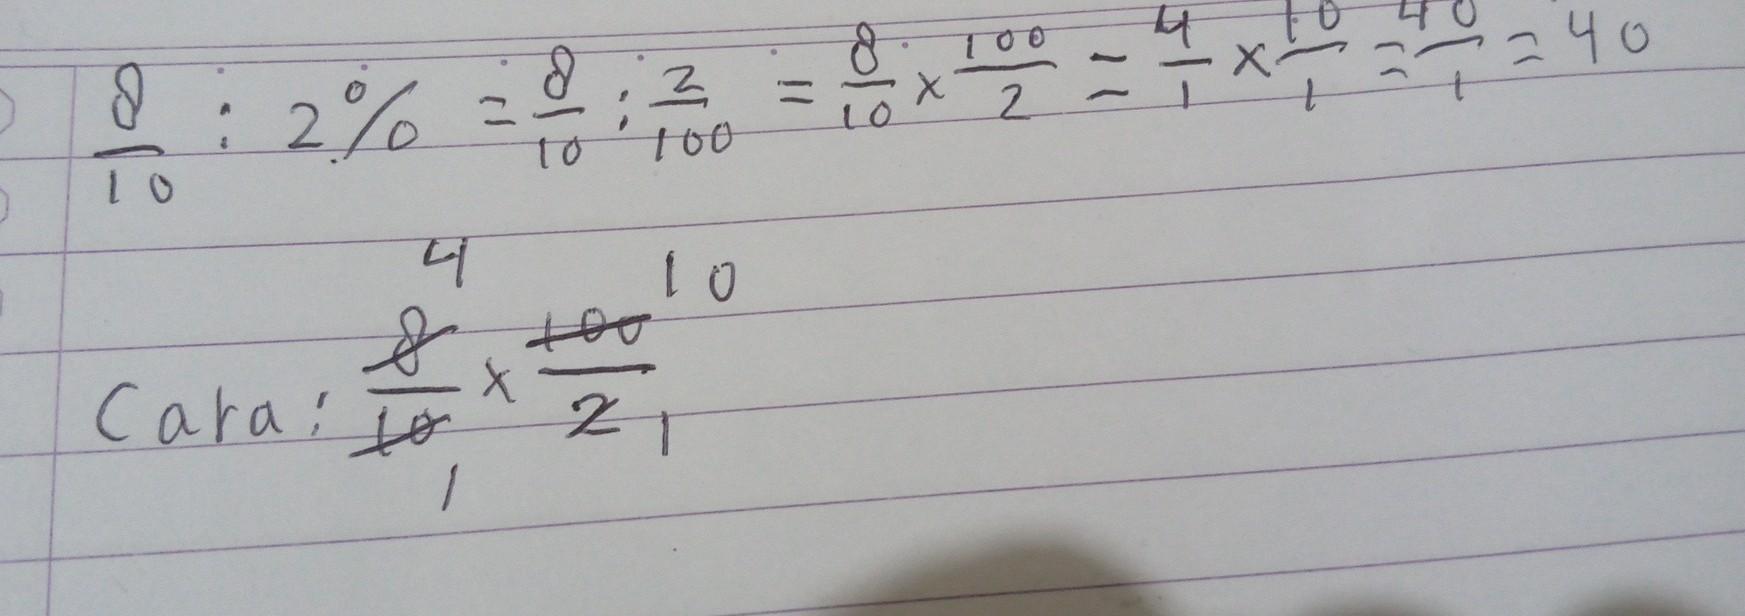 8/10 : 2% = 8/10 : 2/100 = 8/10 × 100/2 = 4/1 × 10/1 = 40/1 = 40
4 10
Cara : 8/10 × 100/2
1 1